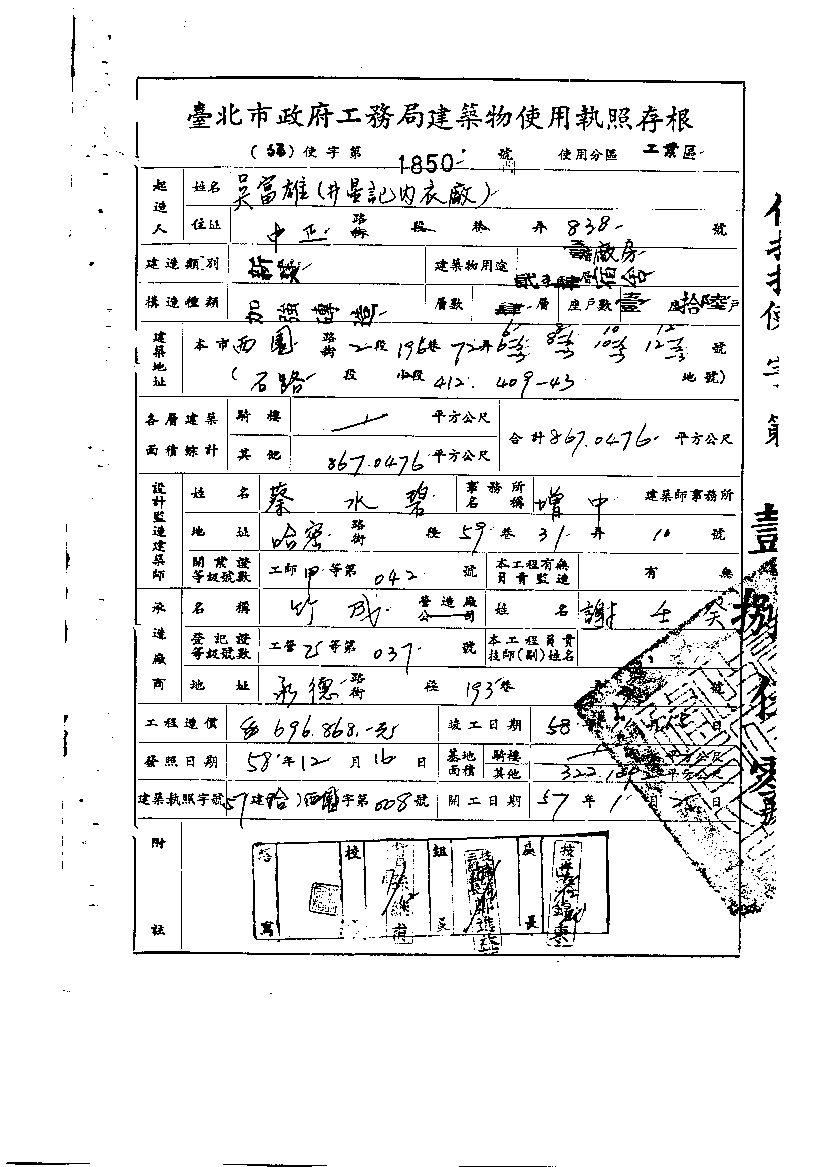 臺北市政府工務局建築物使用執照存根
(58)使字第 1850 號 使用分區 工業區
起造人 姓名 吳富雄(井星記內衣廠)
住址 中正 路街 段 巷 弄 838 號
建造類別 新設 建築物用途 壹廠房 貳至肆宿舍
構造種類 加強磚造 層數 肆層 座戶數 壹座 拾陸戶
建築地址 本市西園路街2段196巷72弄6 8 10 12號
(石路 段 小段 412. 409-43 地號)
各層建築面積綜計 騎樓 平方公尺 合計867.0476平方公尺
其他 867.0476平方公尺
設計監造建築師 姓名 蔡水碧 事務所名稱 增中 建築師事務所
地址 哈密路街 段 59巷 31弄 10號
開業證等級號數 工師甲等第042號 本工程有無負責監造 有 無
承造廠商 名稱 竹成 營造廠公司 姓名 謝壬癸
登記證等級號數 工營乙等第037號 本工程負責技師(副)姓名
地址 承德路街 段 193巷 號
工程造價 696.868.-元 竣工日期 58 日
發照日期 58年12月16日 基地面積 騎樓 平方公尺
其他 平方公尺
建築執照字號 57建(給)西園字第008號 開工日期 57年1月 日
附註
校 組長 股長
壹 捌 伍 零